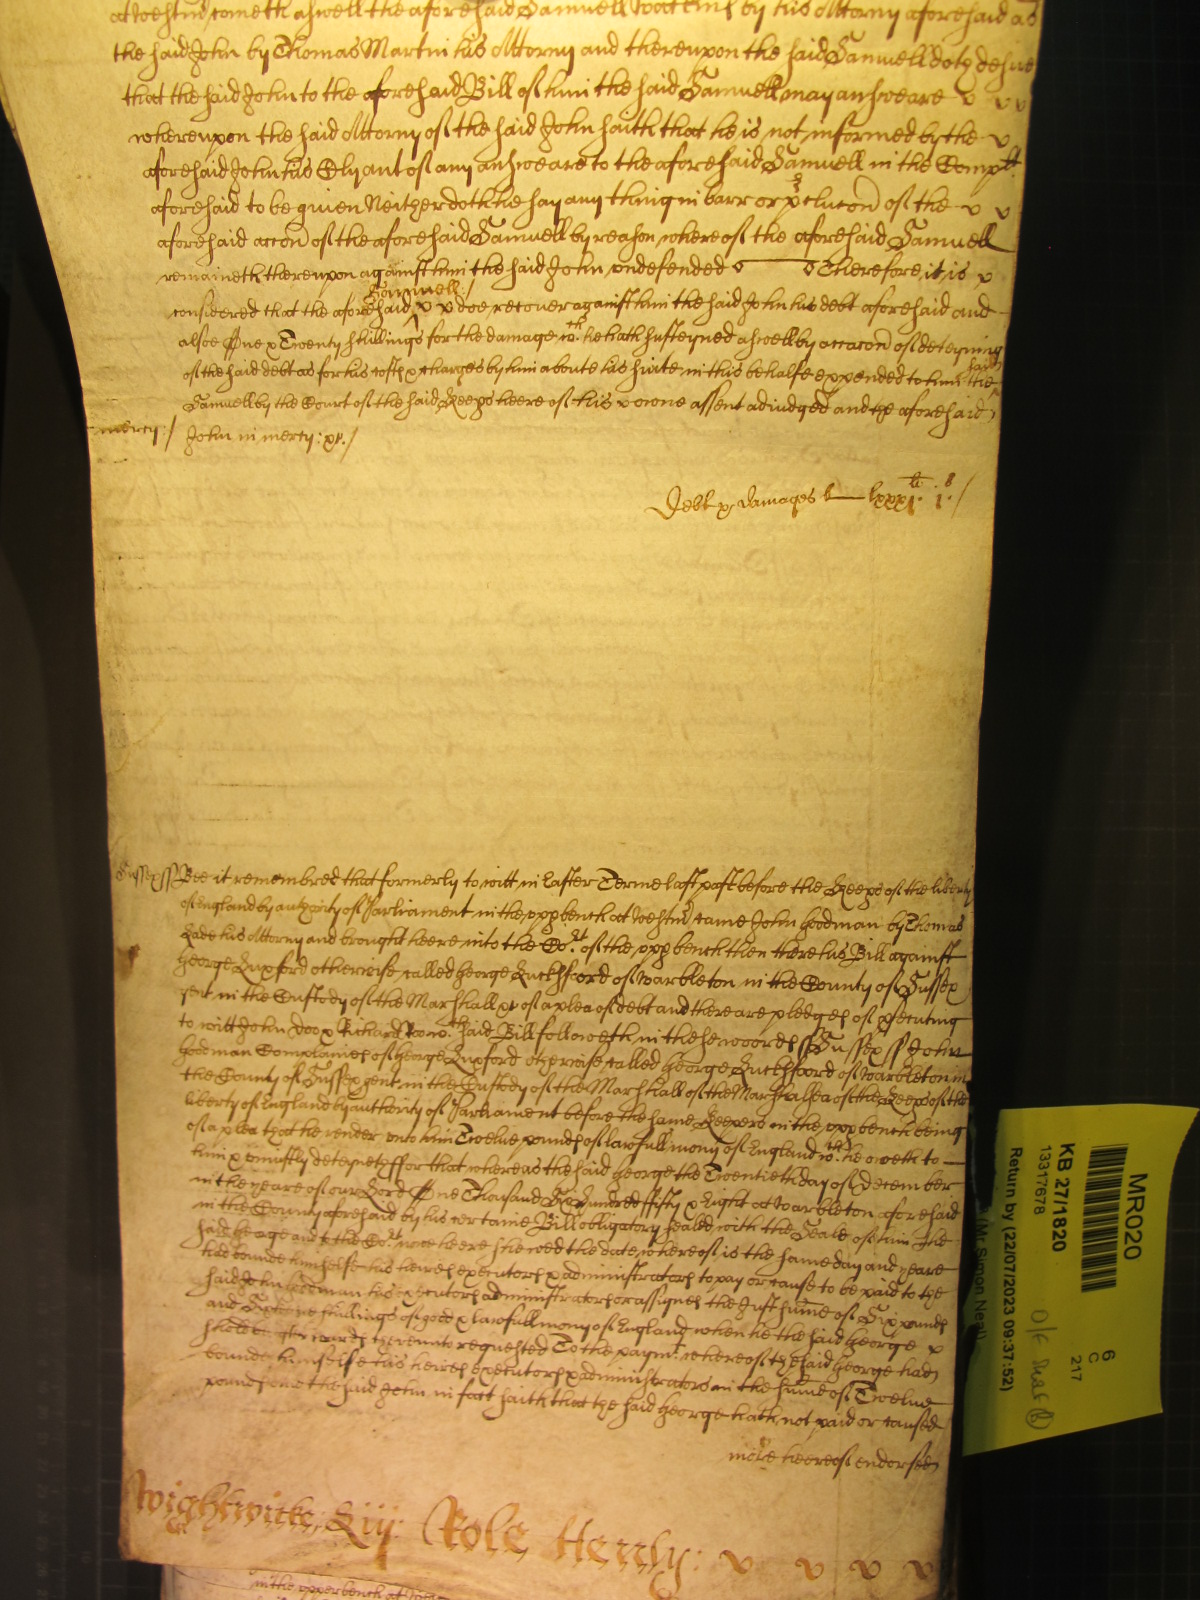 at Westmr cometh aswell the aforesaid Samuell Watkins by his Attorny aforesaid as
the said John by Thomas Martin his Attorny and thereupon the said Samuell doth desire
that the said John to the aforesaid Bill of him the said Samuell may answeare
whereupon the said Attorny of the said John saith that he is not informed by the
aforesaid John his Clyant of any answeare to the aforesaid Samuell in the Complt
aforesaid to be given Neither doth he say any thing in barr or preclucon of the
aforesaid accon of the aforesaid Samuell by reason whereof the aforesaid Samuell
remaineth thereupon against him the said John undefended Therefore it is
considered that the aforesaid Samuell doe recover against him the said John his debt aforesaid and
alsoe One & Twenty shillings for the damage wch he hath susteyned aswell by occacon of deteyning
of the said debt as for his costs & charges by him aboute his suite in this behalfe expended to him the said
Samuell by the Court of the said Keeps heere of his owne assent adiudged and the aforesaid
mercy:/ John in mercy: &c./
Debt & damages lxxxj li. j s./
Sussex ss Bee it remembred that formerly to witt in Easter Terme last past before the Keeps of the liberty
of England by authority of Parliament in the upp bench at Westmr came John Goodman by Thomas
Lade his Attorny and brought heere into the Cort of the upp bench then there his Bill against
George Luxford otherwise called George Lucksford of Warbleton in the County of Sussex
gent in the Custody of the Marshall &c of a plea of debt and there are pledges of psecuting
to witt John Doo & Richard Roo wch said Bill followeth in these woords ss Sussex ss John
Goodman Complaines of George Luxford otherwise called George Lucksford of Warbleton in
the County of Sussex gent in the Custody of the Marshall of the Marshalsea of the Keeps of the
liberty of England by authority of Parliament before the same Keepers in the upp bench being
of a plea that he render unto him Twelve pounds of lawfull mony of England wch he oweth to
him & uniustly deteyneth ffor that whereas the said George the Twentieth day of December
in the yeare of our Lord One Thousand Six hundred ffifty & Eight at Warbleton aforesaid
in the County aforesaid by his certaine Bill obligatory sealed with the Seale of him the
said George and to the Cort nowe heere shewed the date whereof is the same day and yeare
had bounde himselfe his heires executors & administrators to pay or cause to be paid to the
said John Goodman his executors administrators or assignes the Just sume of Six pounds
and shillings of good & lawfull mony of England when he the said George
should bee thereunto requested To the paymt whereof the said George had
bounde himselfe his heires executors & administrators in the sume of Twelve
pounds the said John in fact saith that the said George hath not paid or caused
more heereof endorsed
Wightwicke: Liij: Role Henly:
in the upper bench at
MR020
KB 27/1820
13317678
Return by (22/07/2023 09:37:52)
(Mr Simon Neal)
6
C
217